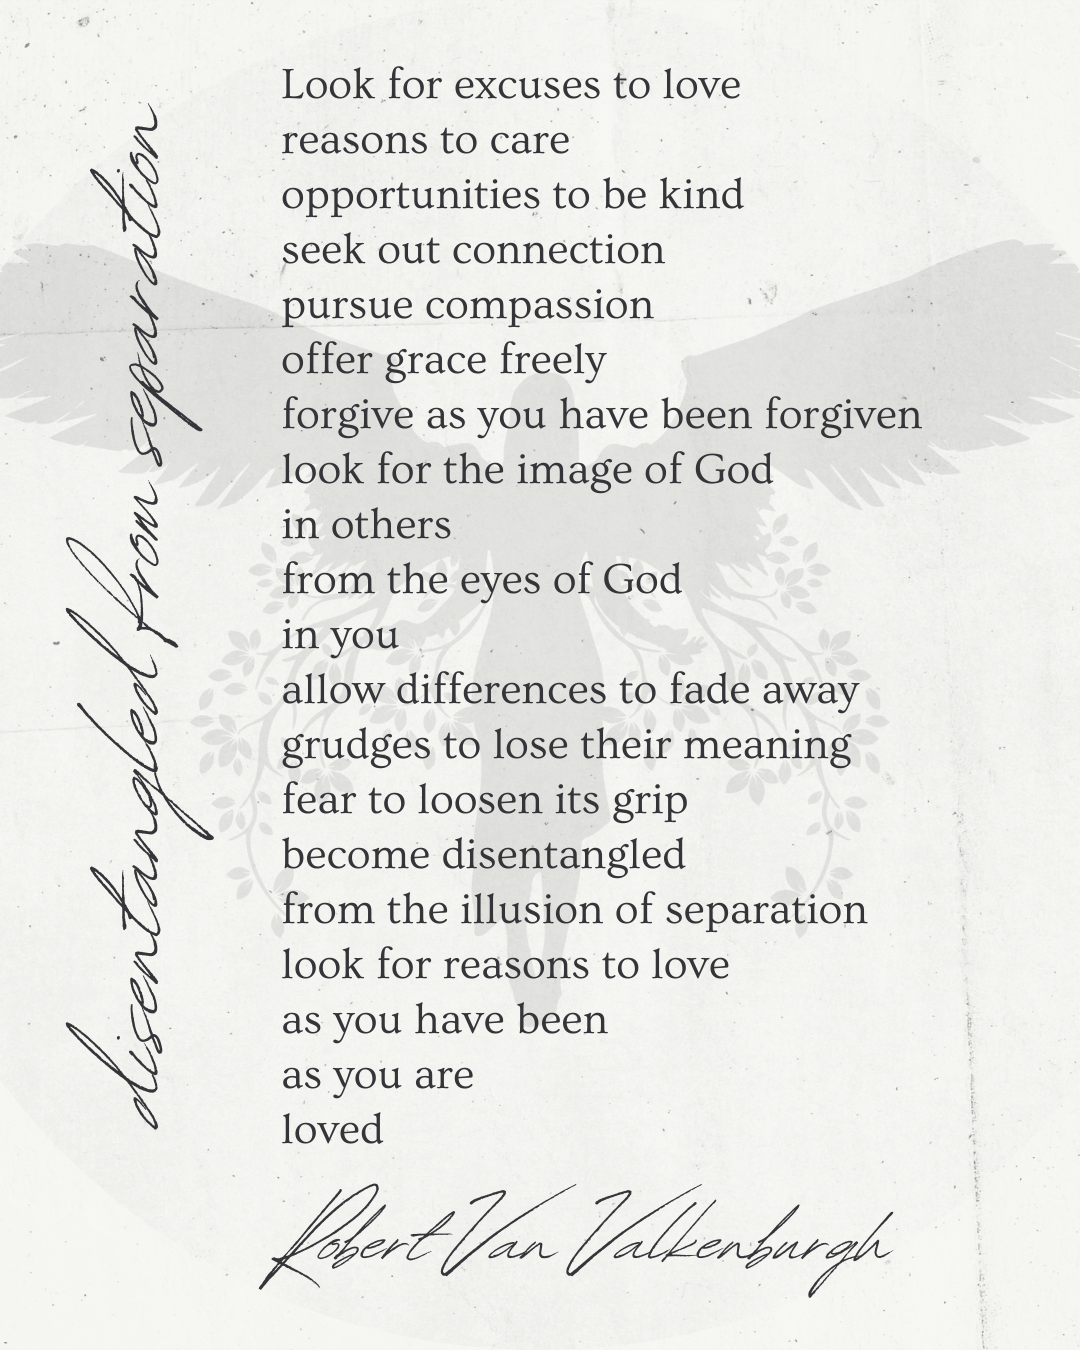 disentangled from separation
Look for excuses to love
reasons to care
opportunities to be kind
seek out connection
pursue compassion
offer grace freely
forgive as you have been forgiven
look for the image of God
in others
from the eyes of God
in you
allow differences to fade away
grudges to lose their meaning
fear to loosen its grip
become disentangled
from the illusion of separation
look for reasons to love
as you have been
as you are
loved
Robert Van Valkenburgh